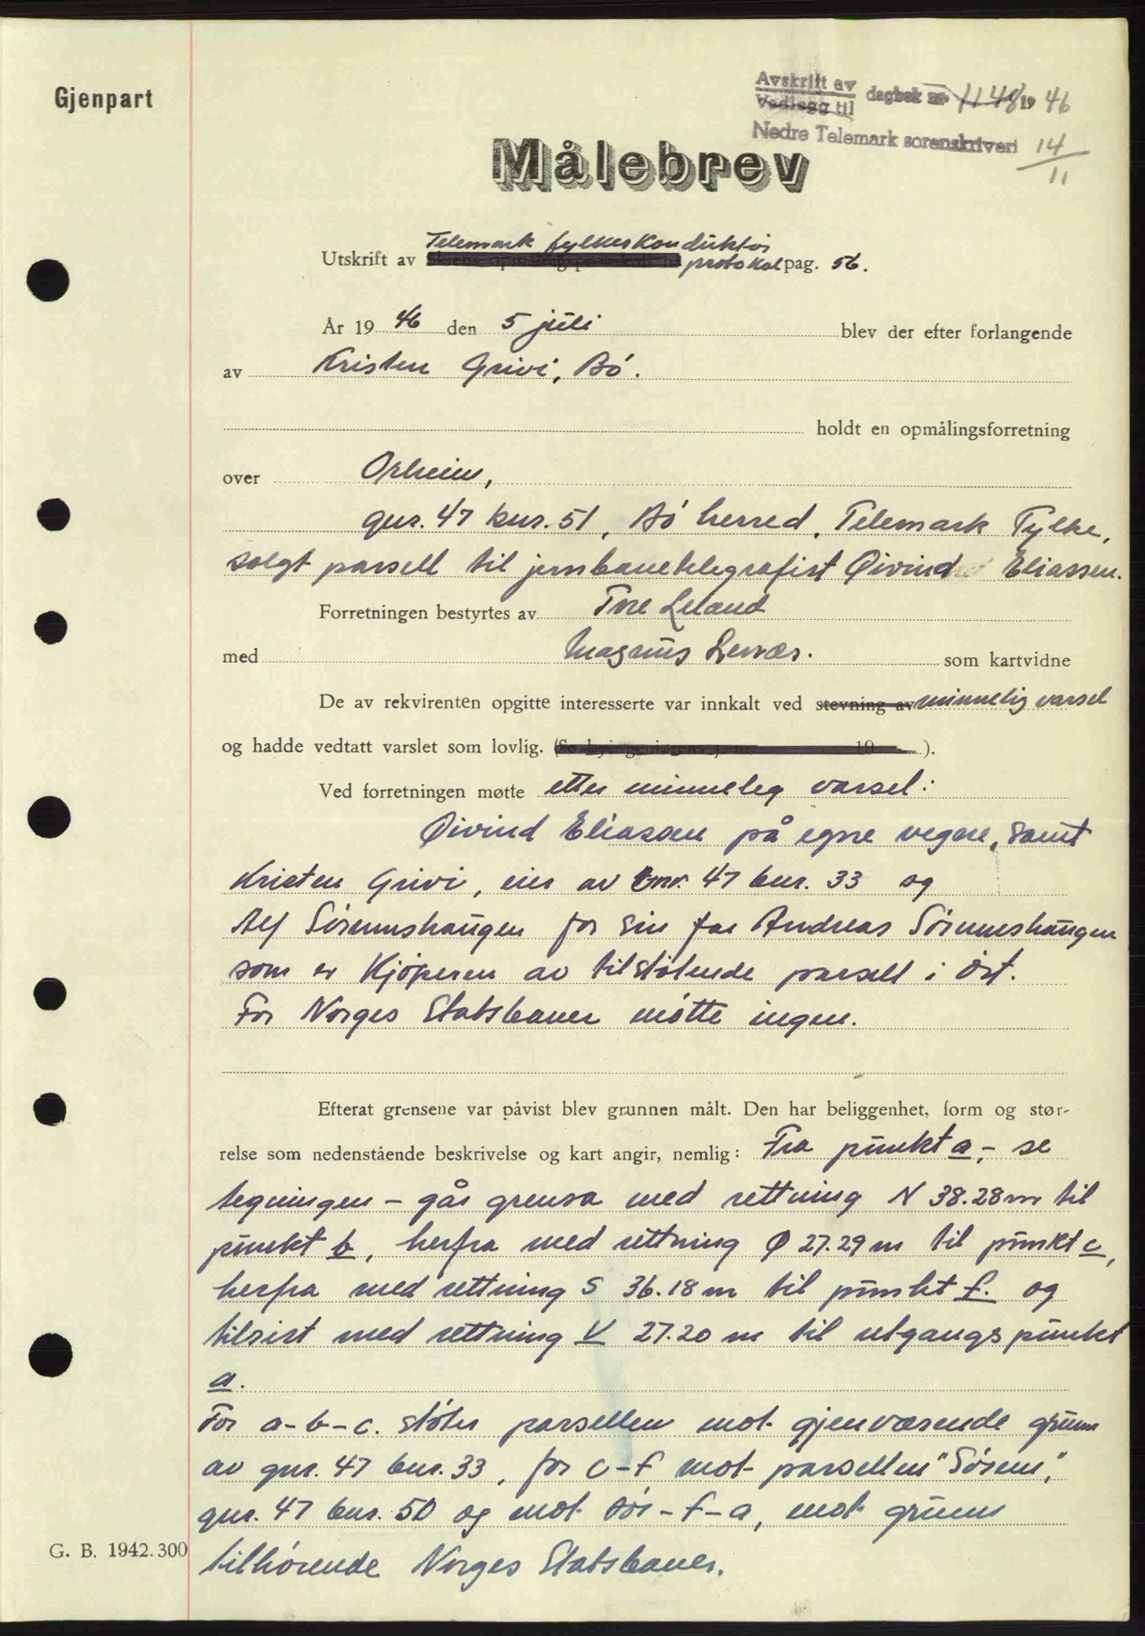 Gjenpart
Avskrift av
Vedlegg til
dagbok nr 1148 19 46
Nedre Telemark sorenskriveri 14/11
Målebrev
Telemark fylkeskonduktør
Utskrift av protokol pag. 56.
År 19 46 den 5 juli blev der efter forlangende
av Kristen Grivi, Bø.
holdt en opmålingsforretning
over Orheim,
gnr. 47 bnr. 51, Bø herred, Telemark Fylke,
solgt parsell til jernbanetelegrafist Øivind Eliassen.
Forretningen bestyrtes av Tore Leland
med Magnus som kartvidne
De av rekvirenten opgitte interesserte var innkalt ved stevning av minnelig varsel
og hadde vedtatt varslet som lovlig. ( 19 ).
Ved forretningen møtte etter minneleg varsel:
Øivind Eliasen på egne vegne, samt
Kristen Grivi, eier av gnr. 47 bnr. 33 og
Alf Sørumshaugen for sin far Andreas Sørumshaugen
som er kjøperen av tilstøtende parsell i øst.
For Norges Statsbaner møtte ingen.
Efterat grensene var påvist blev grunnen målt. Den har beliggenhet, form og stør-
relse som nedenstående beskrivelse og kart angir, nemlig: Fra punkt a, - se
tegningen - går grensa med rettning N 38.28 m til
punkt b, herfra med rettning Ø 27.29 m til punkt c,
herfra med rettning S 36.18 m til punkt f. og
tilsist med rettning V 27.20 m til utgangspunkt
a.
For a-b-c. støter parsellen mot gjenværende grunn
av gnr. 47 bnr. 33, for c-f mot parsellen "Sørum",
gnr. 47 bnr. 50 og mot sør - f-a, mot grunn
tilhørende Norges Statsbaner.
G. B. 1942.300